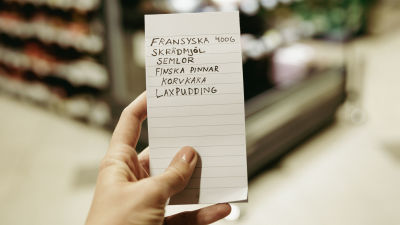 FRANSYSKA 400G
SKRÄDMJÖL
SEMLOR
FINSKA PINNAR
KORVKAKA
LAXPUDDING